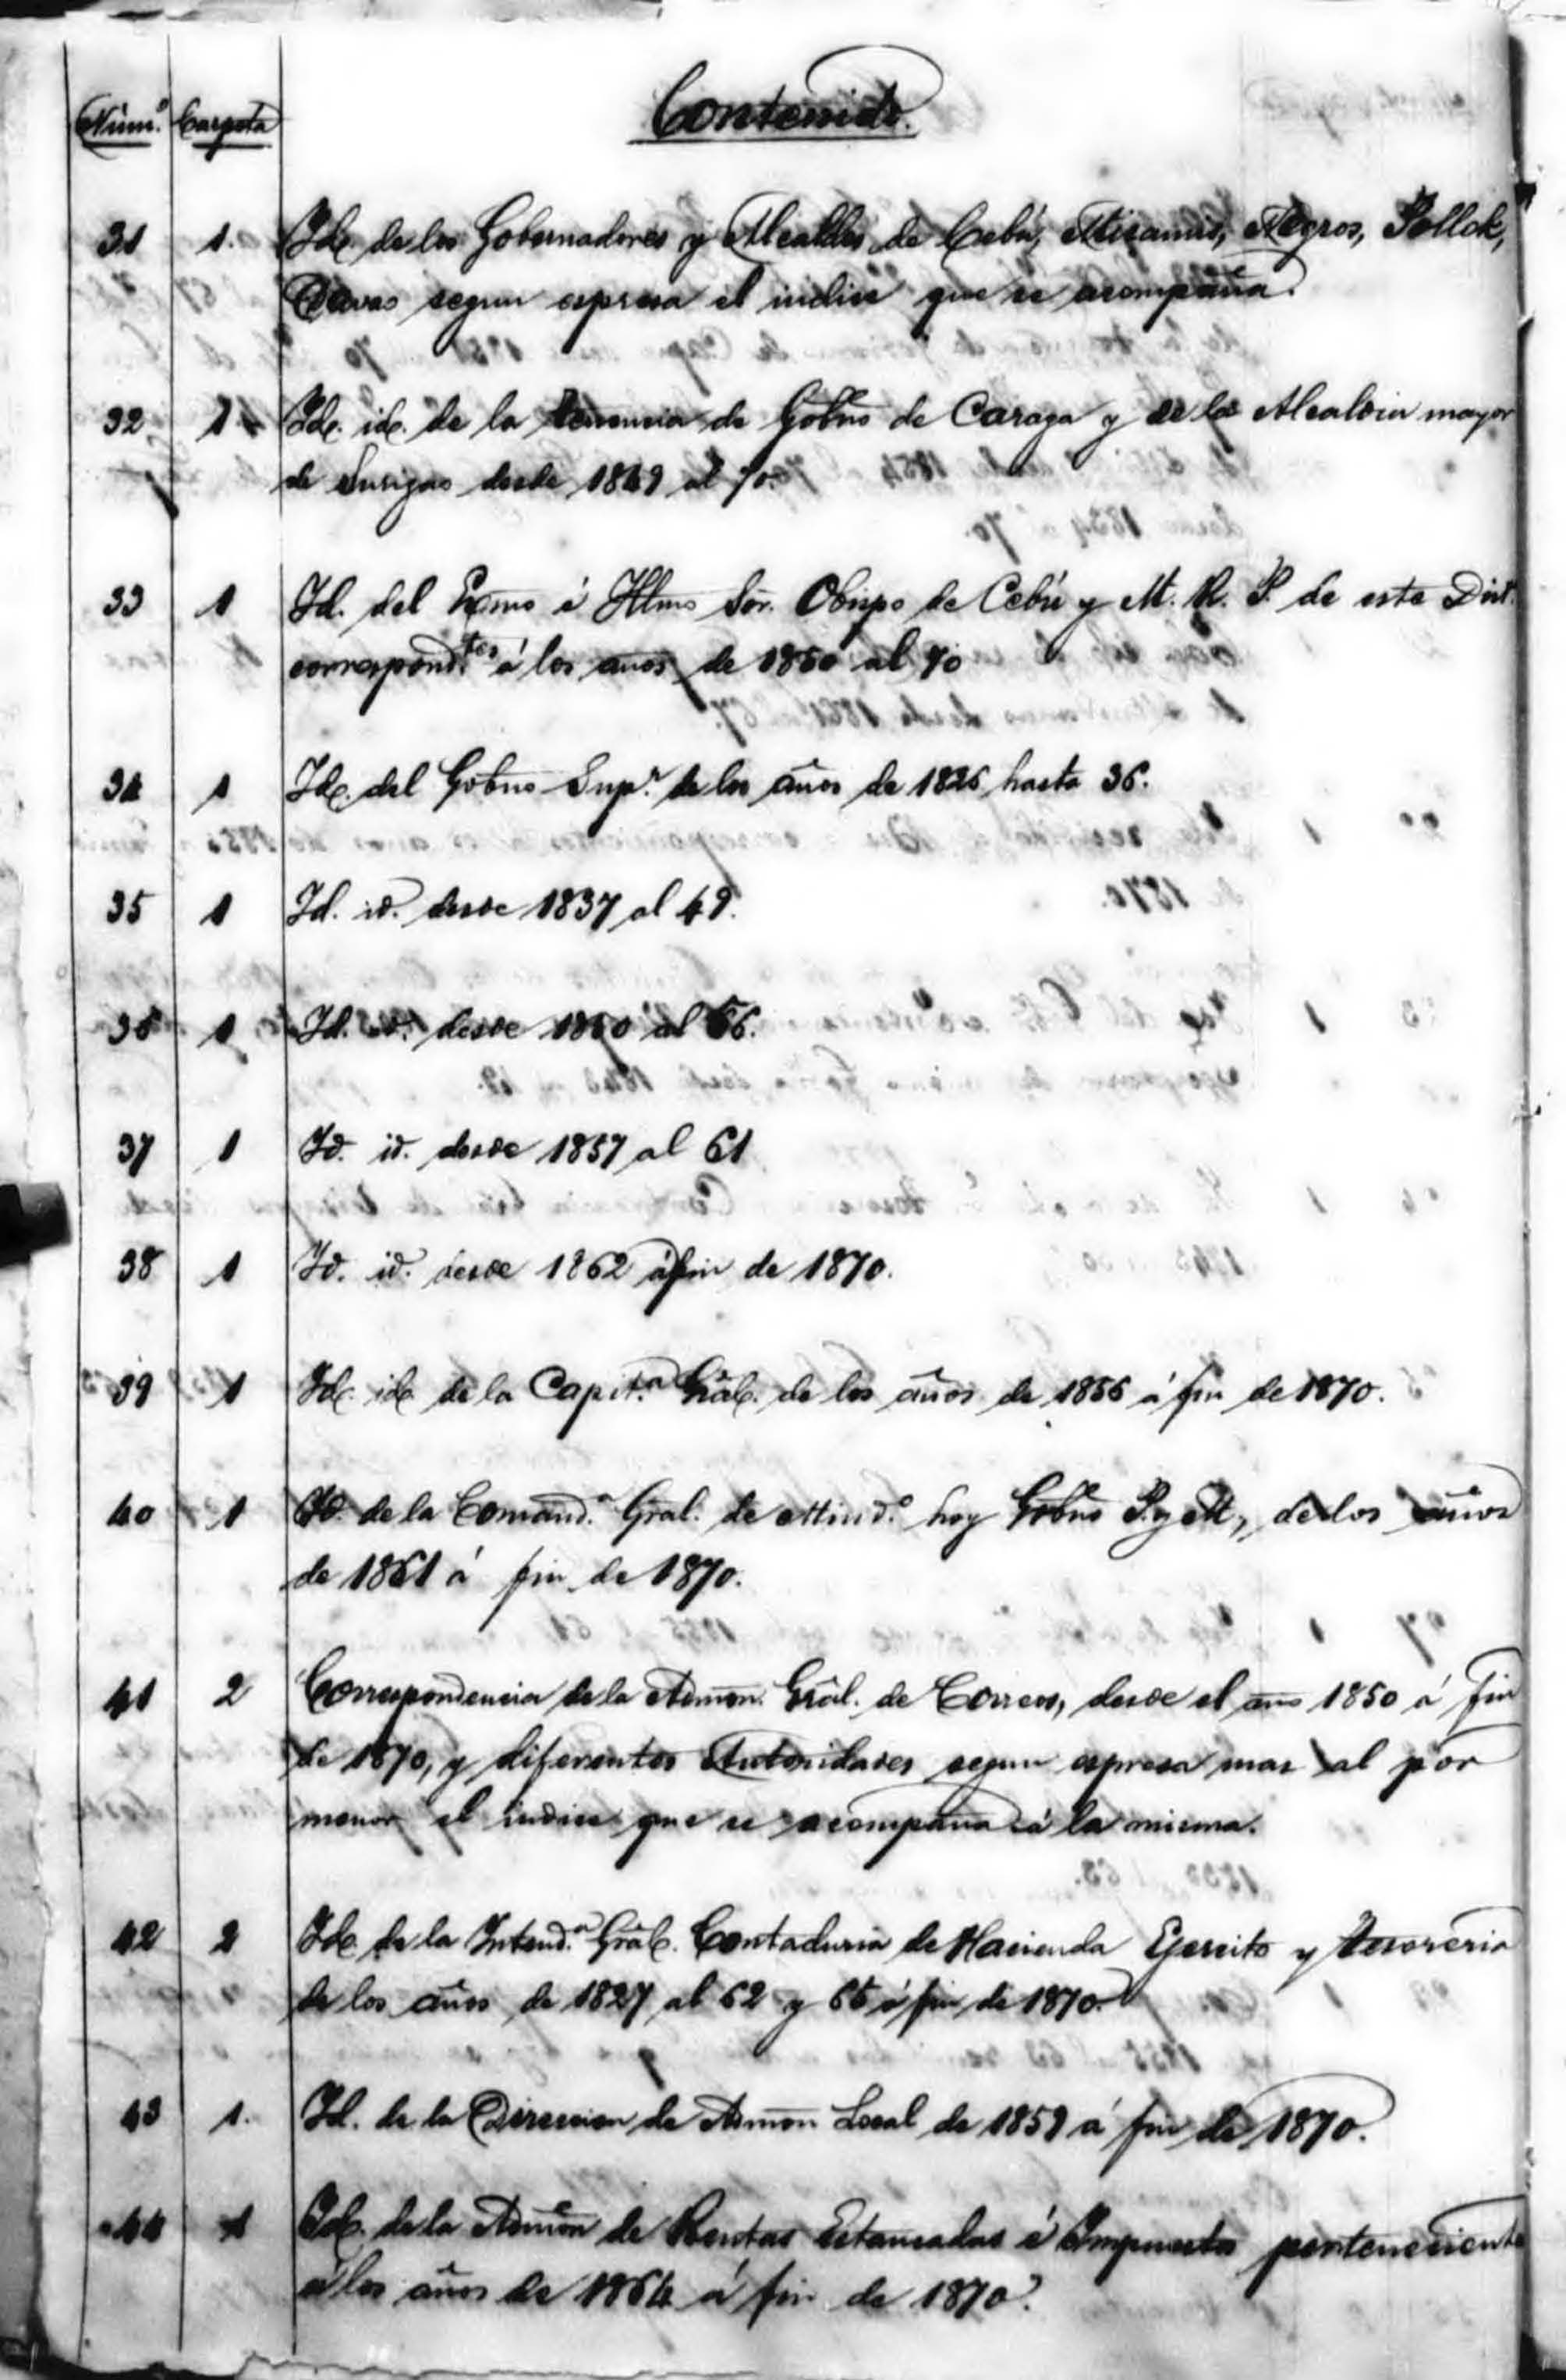 Núm.º Carpeta Contenido.
31 1. Id. de los Gobernadores y Alcaldes de Cebú, Misamis, Negros, Pollok,
Davao segun espresa el indice que se acompaña.
32 1 Id. id. de la tenencia de Gobño de Caraga y de la Alcaldia mayor
de Surigao desde 1849 al 70.
33 1 Id. del Exmo é Illmo Sor. Obispo de Cebú y M. R. P. de este Dist.
correspond.tes á los años de 1850 al 70
34 1 Id. del Gobño Sup.r de los años de 1826 hasta 36.
35 1 Id. id. desde 1837 al 49.
36 1 Id. id. desde 1850 al 56.
37 1 Id. id. desde 1857 al 61
38 1 Id. id. desde 1862 á fin de 1870.
39 1 Id. id. de la Capit.a Gral. de los años de 1856 á fin de 1870.
40 1 Id. de la Comand.a Gral. de Mind.o hoy Gobño P. y M., de los años
de 1861 á fin de 1870.
41 2 Correspondencia de la Admon. Gral. de Correos, desde el año 1850 á fin
de 1870, y diferentes Autoridades segun espresa mas al por
menor el indice que se acompaña á la misma.
42 2 Id. de la Intend.a Gral. Contaduria de Hacienda Ejercito y tesoreria
de los años de 1827 al 62 y 65 á fin de 1870.
43 1. Id. de la Direccion de Admon Local de 1859 á fin de 1870.
44 1 Id. de la Admon de Rentas Estancadas é Impuestos perteneciente
á los años de 1864 á fin de 1870.